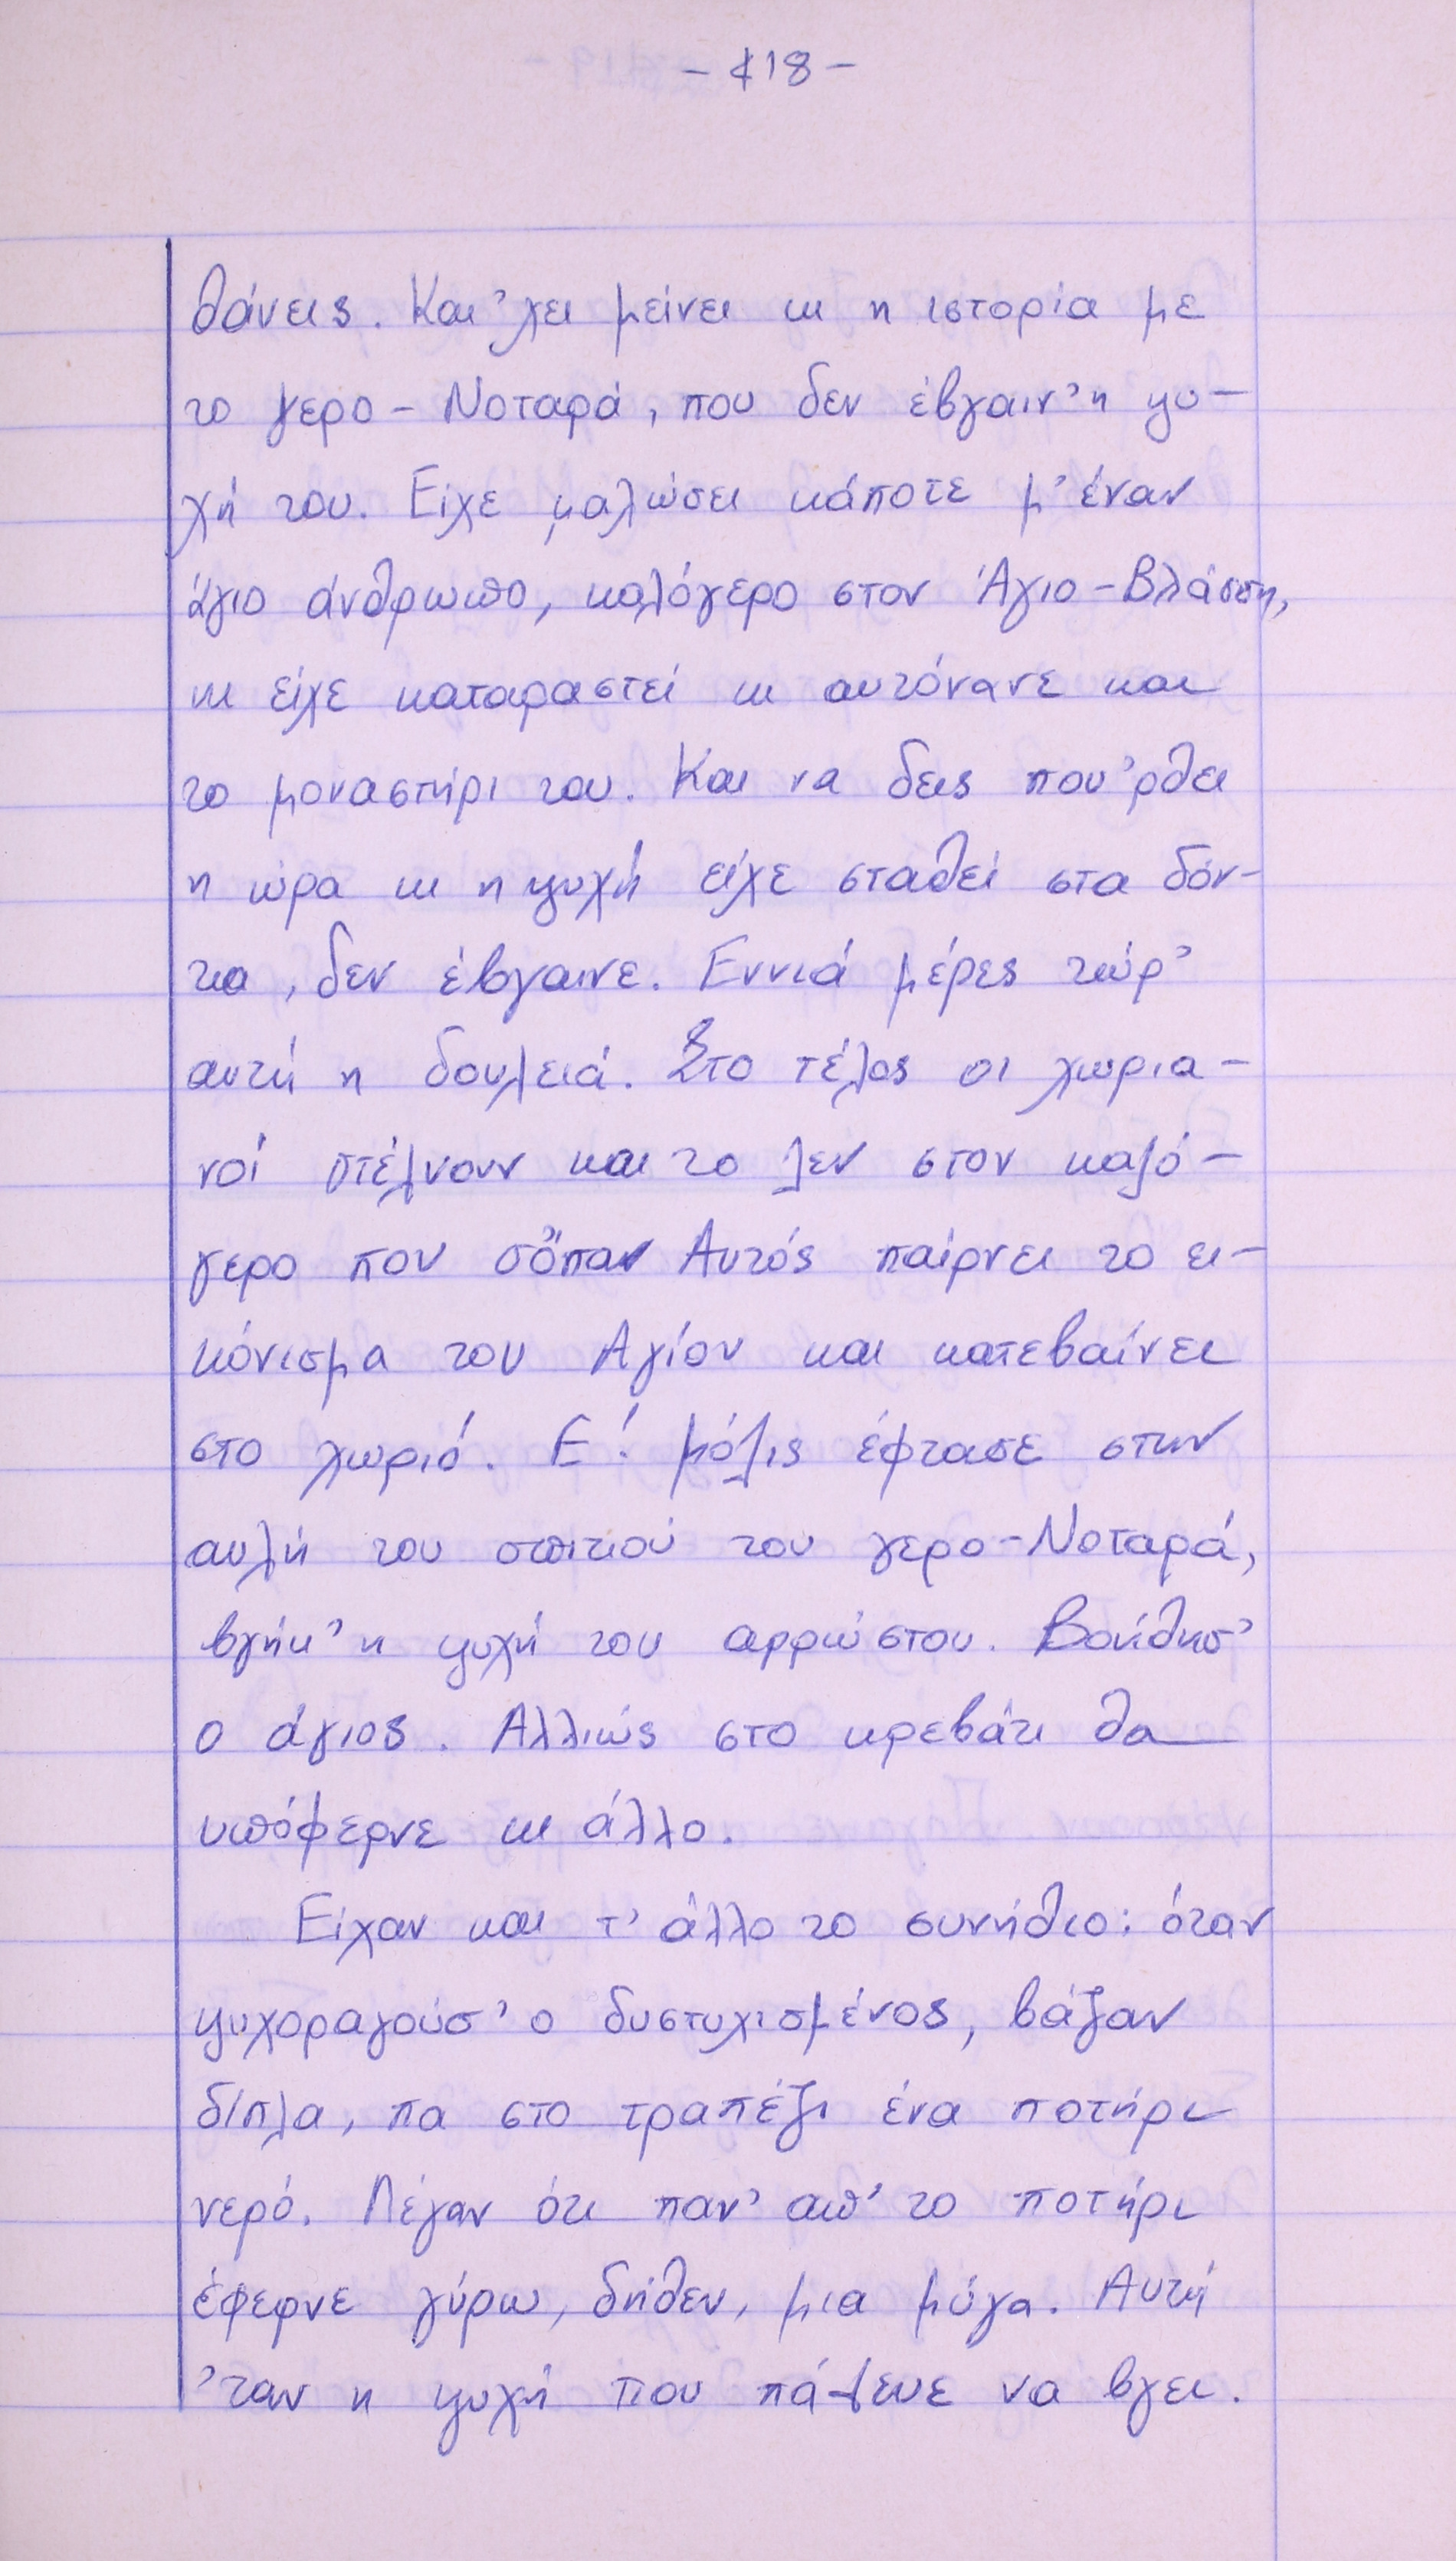 - 418 -
θάνεις. Και 'χει μείνει κι η ιστορία με
το γερο-Νοταρά, που δεν έβγαιν' η ψυ-
χή του. Είχε μαλώσει κάποτε μ' έναν
άγιο άνθρωπο, καλόγερο στον Άγιο-Βλάσση,
κι είχε καταραστεί κι αυτόνανε και
το μοναστήρι του. Και να δεις που 'ρθει
η ώρα κι η ψυχή είχε σταθεί στα δόν-
τια, δεν έβγαινε. Εννιά μέρες τώρ'
αυτή η δουλειά. Στο τέλος οι χωρια-
νοί στέλνουν και το λεν στον καλό-
γερο που σόπαν Αυτός παίρνει το ει-
κόνισμα του Αγίου και κατεβαίνει
στο χωριό. Ε! μόλις έφτασε στην
αυλή του σπιτιού του γερο-Νοταρά,
βγήκ' η ψυχή του αρρώστου. Βοήθησ'
ο άγιος. Αλλιώς στο κρεβάτι θα
υπόφερνε κι άλλο.
Είχαν και τ' άλλο το συνήθιο: όταν
ψυχοραγούσ' ο δυστυχισμένος, βάζαν
δίπλα, πα στο τραπέζι ένα ποτήρι
νερό. Λέγαν ότι παν' απ' το ποτήρι
έφερνε γύρω, δήθεν, μια μύγα. Αυτή
'ταν η ψυχή που πάλευε να βγει.